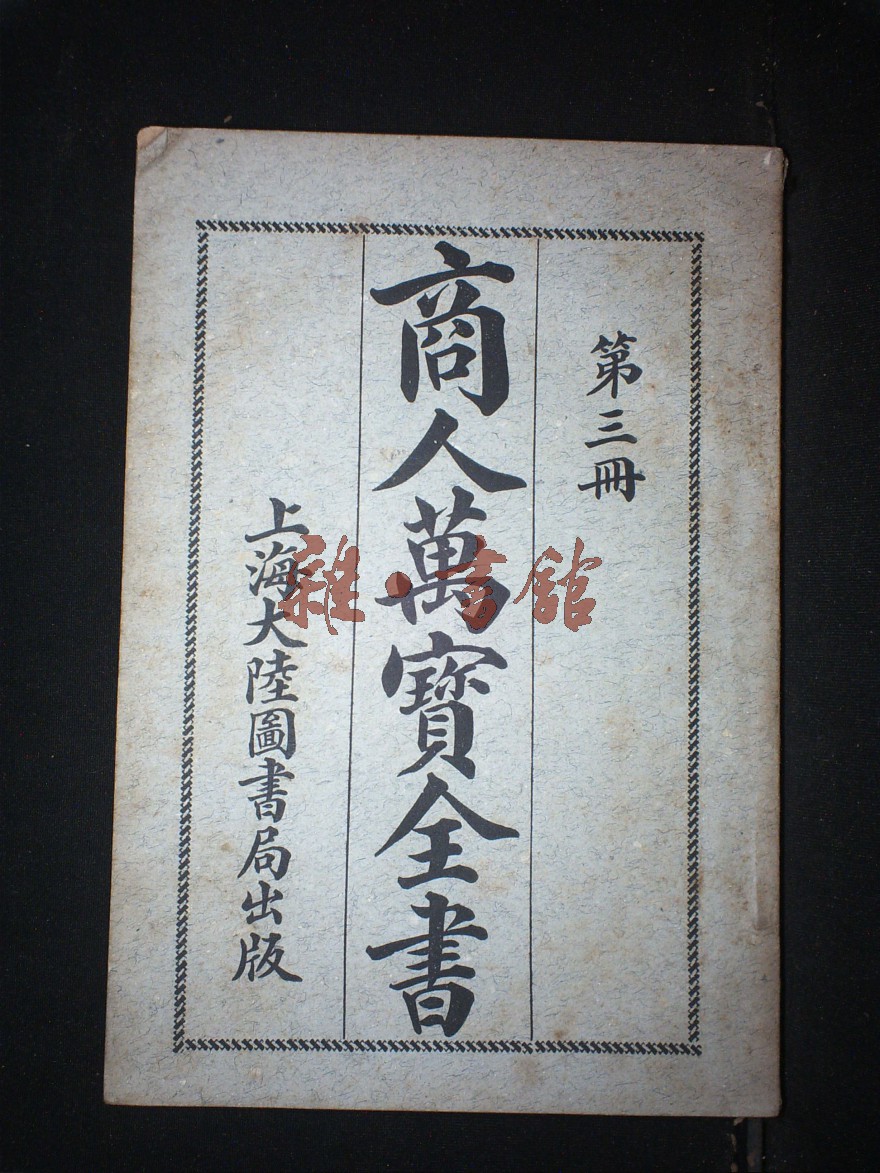 第三冊
商人萬寳全書
上海大陸圖書局出版
雜·書館